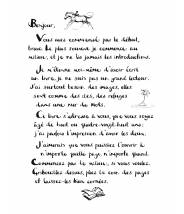 Bonjour,
Vous avez commencé par le début,
bravo. Le plus souvent je commence au
milieu, et je ne lis jamais les introductions.
Je m'étonne moi-même d'avoir écrit
un livre, je ne suis pas un grand lecteur.
J'ai surtout besoin des images, elles
sont comme des îles, des refuges
dans une mer de mots.
Ce livre s'adresse à vous, que vous soyez
âgé de huit ou quatre-vingt ans,
j'ai parfois l'impression d'avoir les deux.
J'aimerais que vous puissiez l'ouvrir à
n'importe quelle page, n'importe quand.
Commencez par le milieu, si vous voulez.
Gribouillez dessus, pliez le coin des pages
et laissez-les bien cornées.